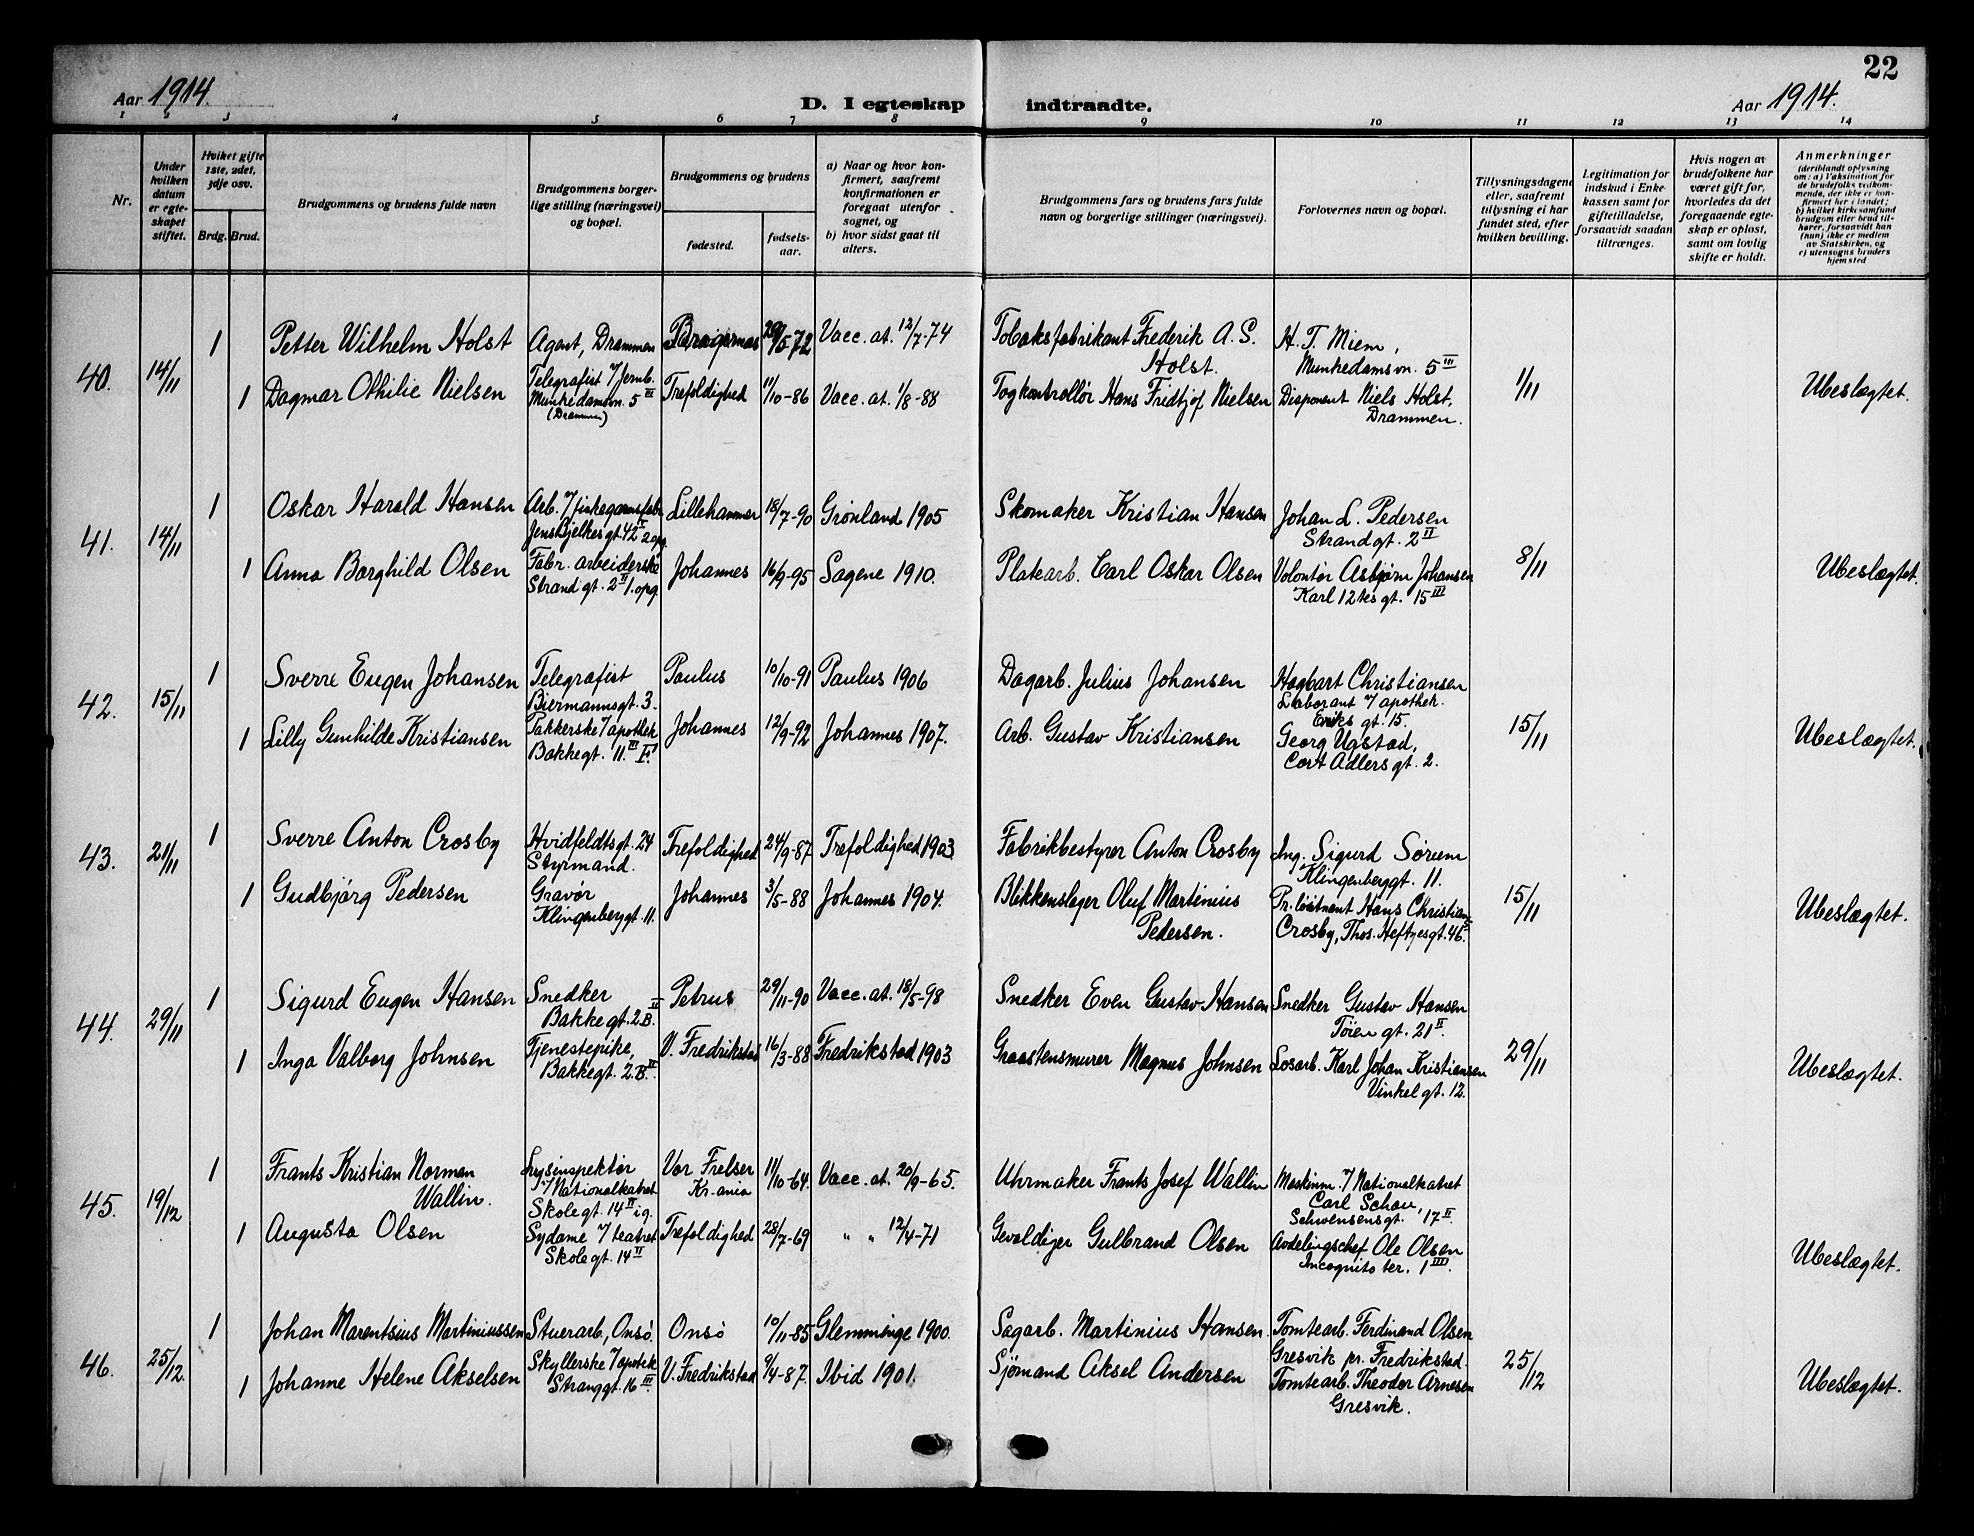 22
Aar 1914.
D. I egteskap indtraadte.
Aar 1914.
1 2 3 4 5 6 7 8 9 10 11 12 13 14
Nr.
Under hvilken datum er egteskapet stiftet.
Hvilket gifte 1ste, 2det, 3dje osv.
Brdg. Brud.
Brudgommens og brudens fulde navn
Brudgommens borgerlige stilling (næringsvei) og bopæl.
Brudgommens og brudens
fødested.
fødselsaar.
a) Naar og hvor konfirmert, saafremt konfirmationen er foregaat utenfor sognet, og
b) hvor sidst gaat til alters.
Brudgommens fars og brudens fars fulde navn og borgerlige stillinger (næringsvei).
Forlovernes navn og bopæl.
Tillysningsdagene eller, saafremt tillysning ei har fundet sted, efter hvilken bevilling.
Legitimation for indskud i Enkekassen samt for giftetilladelse, forsaavidt saadan tiltrænges.
Hvis nogen av brudefolkene har været gift før, hvorledes da det foregaaende egteskap er opløst, samt om lovlig skifte er holdt.
Anmerkninger (deriblandt oplysning om: a) Vaksination for de brudefolks vedkommende, der ikke er konfirmert her i landet; b) hvilket kirkesamfund brudgom eller brud tilhører, forsaavidt han (hun) ikke er medlem av Statskirken, og c) utensogns bruders hjemsted
40. 14/11
1 Petter Wilhelm Holst Agent, Drammen Bragernes 29/5 72 Vacc. at. 12/7-74 Tobaksfabrikant Frederik A. S. Holst. H. T. Miem, Munkedamsvn. 5 III
1 Dagmar Othilie Nielsen Telegrafist v/ Jernb. Munkedamsvn. 5 III (Drammen) Trefoldighed 11/10-86 Vacc. at. 1/8-88 Togkontrollør Hans Fridtjof Nielsen Disponent Niels Holst, Drammen. 1/11 Ubeslægtet.
41. 14/11
1 Oskar Harald Hansen Arb. v/ fiskegarnsfabr. Jens Bjelkesgt. 42 II 2 opg. Lillehammer 18/7-90 Grønland 1905 Skomaker Kristian Hansen Johan L. Pedersen Strandgt. 2 II
1 Anna Borghild Olsen Fabr. arbeiderske Strandgt. 2 II 1. opg. Johannes 16/9-95 Sagene 1910. Platearb. Carl Oskar Olsen Volontør Asbjørn Johansen Karl 12tes gt. 15 III 8/11 Ubeslægtet.
42. 15/11
1 Sverre Eugen Johansen Telegrafist Biermannsgt. 3. Paulus 10/10-91 Paulus 1906 Dagarb. Julius Johansen Hagbart Christiansen Laborant v/ apothek. Eriks gt. 15.
1 Lilly Gunhilde Kristiansen Pakkerske v/ apothek Bakkegt. 11. III Johannes 12/9-92 Johannes 1907. Arb. Gustav Kristiansen Georg Ugstad, Cort Adlersgt. 2. 15/11 Ubeslægtet.
43. 21/11
1 Sverre Anton Crosby Hvidfeldtsgt. 24 Styrmand. Trefoldighed 24/9-87 Trefoldighed 1903 Fabrikbestyrer Anton Crosby Ing. Sigurd Sørum Klingenberggt. 11.
1 Gudbjørg Pedersen Gravør Klingenberggt. 11. Johannes 3/5-88 Johannes 1904. Blikkenslager Oluf Martinius Pedersen. Pr. løitnant Hans Christian Crosby, Thos. Heftyesgt. 46. 15/11 Ubeslægtet.
44. 29/11
1 Sigurd Eugen Hansen Snedker Bakkegt. 2 B. II Petrus 29/11-90 Vacc. at. 18/5-98 Snedker Even Gustav Hansen Snedker Gustav Hansen Töien gt. 21 II.
1 Inga Valborg Johnsen Tjenestepike, Bakkegt. 2. B. II V. Fredrikstad 16/3-88 Fredrikstad 1903 Graastensmurer Magnus Johnsen Losarb. Karl Johan Kristiansen Vinkelgt. 12. 29/11 Ubeslægtet.
45. 19/12
1 Frants Kristian Norman Wallin. Lysinspektør v/ Nationalteatret Skolegt. 14 II ig. Vor Frelser Kr.ania 11/10-64. Vacc. at. 20/9-65. Uhrmaker Frants Josef Wallin Maskinm. v/ Nationalteatret Carl Schou, Schwensensgt. 17 II.
1 Augusta Olsen Sydame v/ teatret Skolegt. 14 II Trefoldighed 28/7-69 " " 12/4-71 Gevaldiger Gulbrand Olsen Avdelingschef Ole Olsen Incognito ter. 1 III. Ubeslægtet.
46. 25/12.
1 Johan Marentsius Martiniussen Stuerarb, Onsö. Onsö 10/11-85 Glemminge 1900. Sagarb. Martinius Hansen. Tomtearb. Ferdinand Olsen Gresvik pr. Fredrikstad.
1 Johanne Helene Akselsen Skyllerske v/ apotek Stranggt. 16 III. V. Fredrikstad 9/4-87. Ibid 1901. Sjømand Aksel Andersen Tomtearb. Theodor Arnesen Gresvik. 25/12 Ubeslægtet.